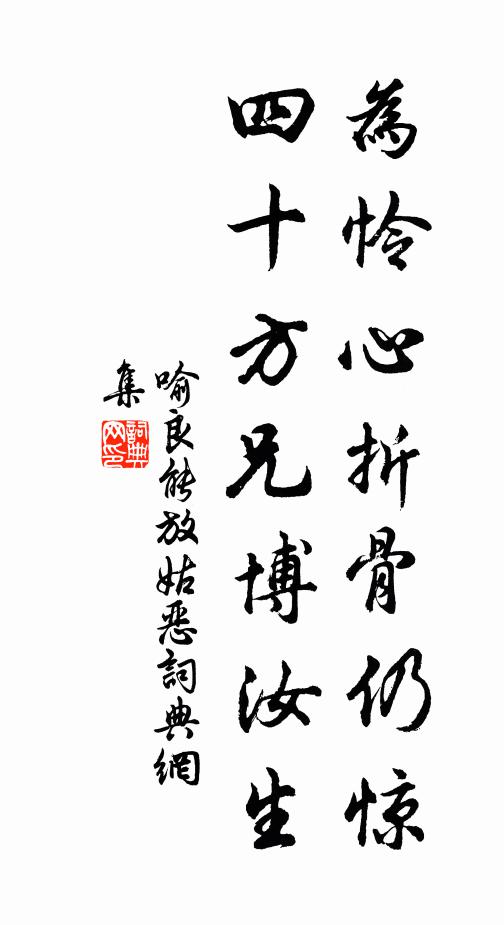 為怜心折骨仍惊
四十方兄博汝生
喻良能放姑恶詞典網
集
詞典
网印